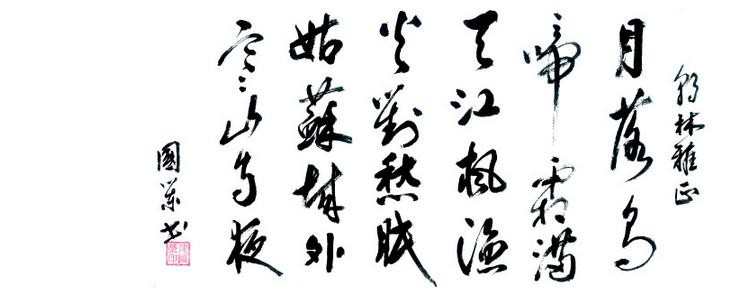 林雅正
月落烏
啼霜滿
天江楓漁
火對愁眠
姑蘇城外
寒山寺夜
國书